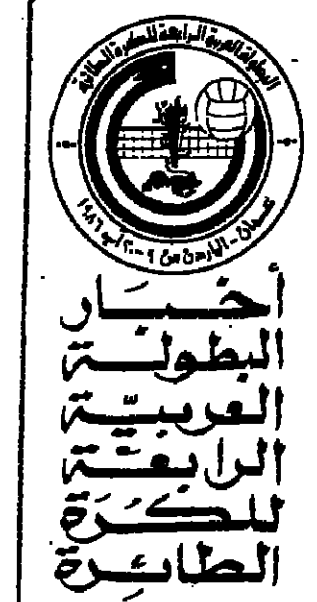 البطولة العربية الرابعة للكرة الطائرة
عمان - الأردن من ٩ - ٢٠ آب ١٩٨٦
أخبار
البطولة
العربيّة
الرابعة
للكرة
الطائرة